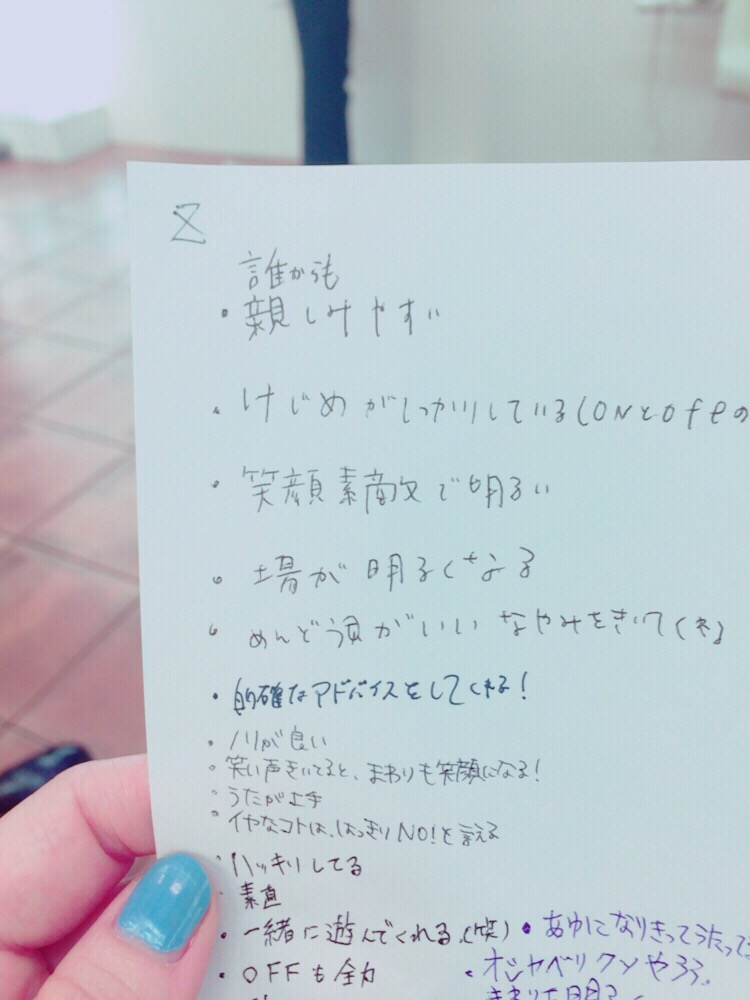 Z
誰からも
・親しみやすい
・けじめがしっかりしている(ONとOffの
・笑顔素敵で明るい
・場が明るくなる
・めんどう見がいい なやみをきいてくれる
・的確なアドバイスをしてくれる!
・ノリが良い
・笑い声きいてると、まわりも笑顔になる!
・うたが上手
・イヤなコトは、はっきりNO!と言える
・ハッキリしてる
・素直
・一緒に遊んでくれる(笑) ・あゆになりきってうたって
・OFFも全力 ・オシャベリクソやろう。